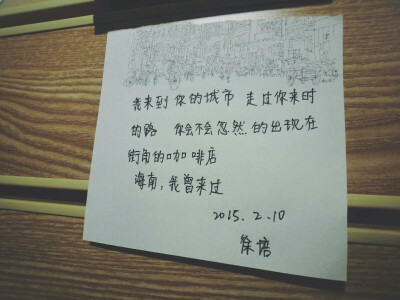 我来到你的城市 走过你来时
的路 你会不会忽然的出现在
街角的咖啡店
海南,我曾来过
2015.2.10
徐培